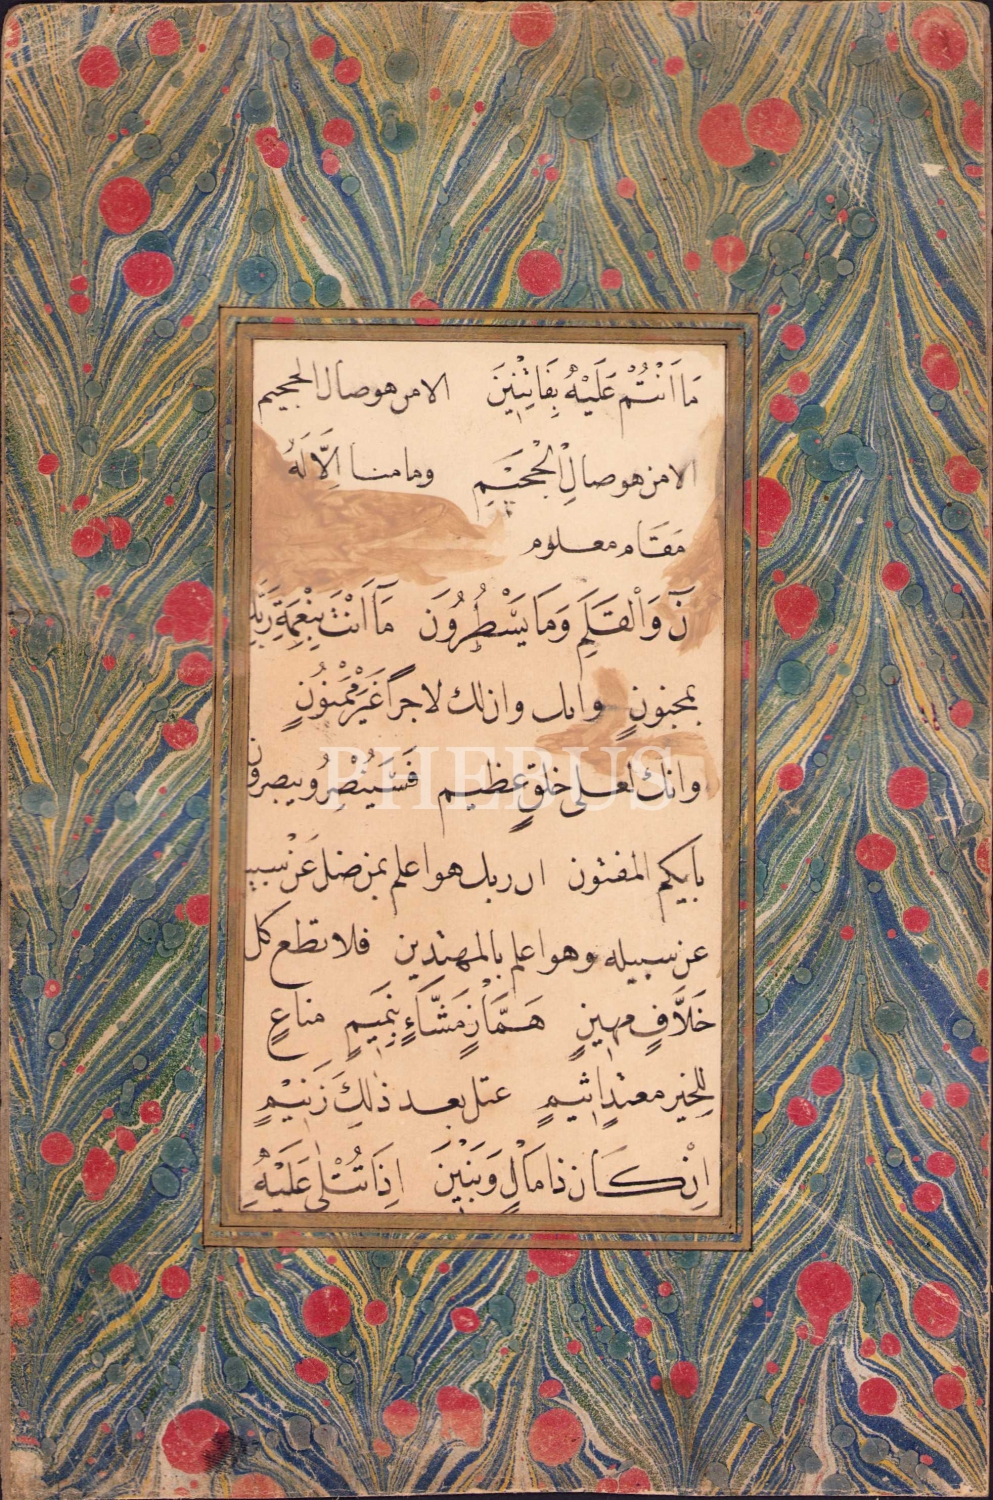 مَا اَنْتُمْ عَلَيْهِ بِفَاتِنِينَ الا من هو صال الجحيم
الا من هو صالِ الْجَحَيْمِ وما منا اِلَّا لَهُ
مَقَام معلوم
نٓ وَالْقَلَمِ وَمَا يَسْطُرُونَ مَآ اَنْتَ بِنِعْمَةِ رَبِّكَ
بمجنونٍ وانك وان لك لاجراً غَيْرَ مَمْنُونٍ
وانك لعلى خلقٍ عظيم فَسَتُبْصِرُ ويبصرون
PHEBUS
بايكم المفتون ان ربك هو اعلم بمن ضل عَنْ سبيـ
عن سبيله وهو اعلم بالمهتدين فلا تطع كل
حَلَّافٍ مهينٍ هَمَّازٍ مَشَّاءٍ بِنَمَيمٍ مناعٍ
للخير معتدٍ اثيمٍ عتل بعد ذٰلِكَ زَنَيْمٍ
اِنْ كَانَ ذا مَالٍ وَبَنِيْنَ اِذَا تُتْلٰى عَلَيْهِ